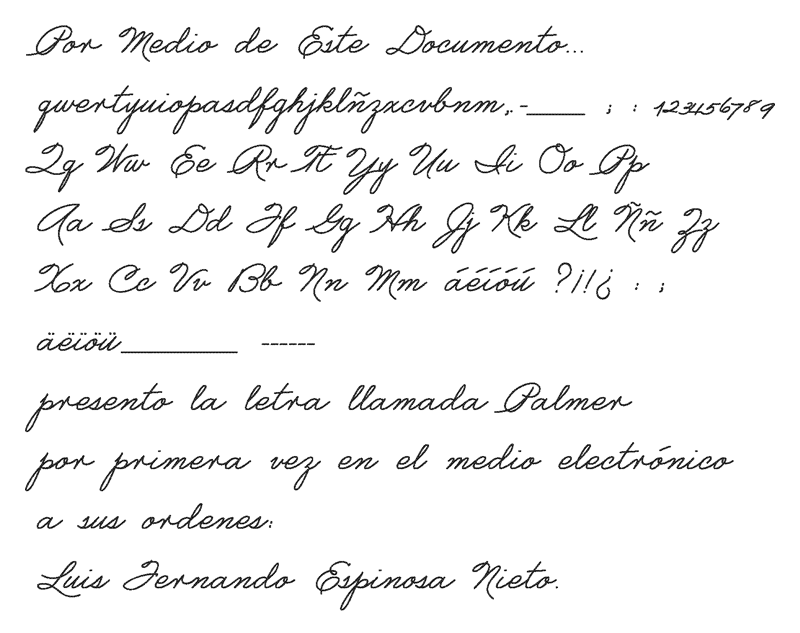 Por Medio de Este Documento...
qwertyuiopasdfghjklñzxcvbnm,.-_____ ; : 123456789
Qq Ww Ee Rr Tt Yy Uu Ii Oo Pp
Aa Ss Dd Ff Gg Hh Jj Kk Ll Ññ Zz
Xx Cc Vv Bb Nn Mm áéíóú ?¡!¿ : ;
äëïöü__________ ------
presento la letra llamada Palmer
por primera vez en el medio electrónico
a sus ordenes:
Luis Fernando Espinosa Nieto.